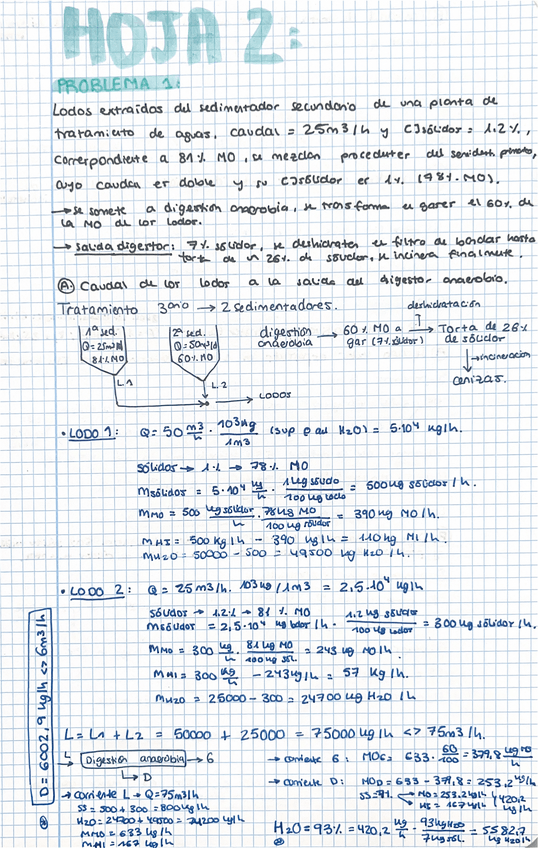 HOJA 2:
PROBLEMA 1:
Lodos extraidos del sedimentador secundario de una planta de
tratamiento de aguas, caudal = 25m3/h y C]sólidor = 1.2%,
correspondiente a 81% MO, se mezclan procedenter del
cuyo caudal er doble y su C]sólidor er 1% (78% MO).
→ se somete a digestión anaerobia, se transforma en gases el 60% de
la MO de los lodor.
→ salida digestor: 7% sólidor, se deshidratan en filtro de bandar hasta
torta de un 26% de sólidor, se incinera finalmente.
A. Caudal de lor lodos a la salida del digestor anaerobio.
Tratamiento 3ario → 2 sedimentadores.
deshidratación
1ª sed.
Q=25m3/d
81% MO
2ª sed.
Q=50m3/d
60% MO
digestión anaerobia → 60% MO a gar (7% sólidor) → Torta de 26% de sólidor
→ incineración
cenizas.
L1
L2
→ LODOS
• LODO 1: Q = 50 m3/h · 103kg/1m3 (sup ρ au H2O) = 5·10⁴ kg/h.
sólidos → 1% → 78% MO
msólidos = 5·10⁴ kg/h · 1kg sólido/100kg lodo = 500 kg sólidos/h.
mMO = 500 kg sólidor/h · 78kg MO/100 kg sólidor = 390 kg MO/h.
mMI = 500 kg/h - 390 kg/h = 110 kg MI/h.
mH2O = 50000 - 500 = 49500 kg H2O/h.
• LODO 2: Q = 25 m3/h · 103kg/1m3 = 2,5·10⁴ kg/h
sólidos → 1.2% → 81% MO
msólidos = 2,5·10⁴ kg lodor/h · 1.2 kg sólidor/100kg lodor = 300 kg sólidor/h.
mMO = 300 kg/h · 81kg MO/100kg sól. = 243 kg MO/h.
mMI = 300 kg/h - 243kg/h = 57 kg/h.
mH2O = 25000 - 300 = 24700 kg H2O/h
L = L1 + L2 = 50000 + 25000 = 75000 kg/h <> 75m3/h.
L → Digestión anaerobia → G
→ D
→ corriente G: MOG = 633 · 60/100 = 379,8 kg MO/h
→ corriente D: MOD = 633 - 379,8 = 253,2 kg/h
SS=7% → MO = 253.2 kg/h
→ MI = 167 kg/h
420,2 kg/h
→ corriente L → Q=75m3/h
SS = 500 + 300 = 800kg/h
H2O = 24700 + 49500 = 74200 kg/h
mMO = 633 kg/h
mMI = 167 kg/h
H2O = 93% = 420,2 kg/h · 93kg H2O/7kg sól. = 5582,7 kg H2O/h
D = 6002,9 kg/h <> 6m3/h